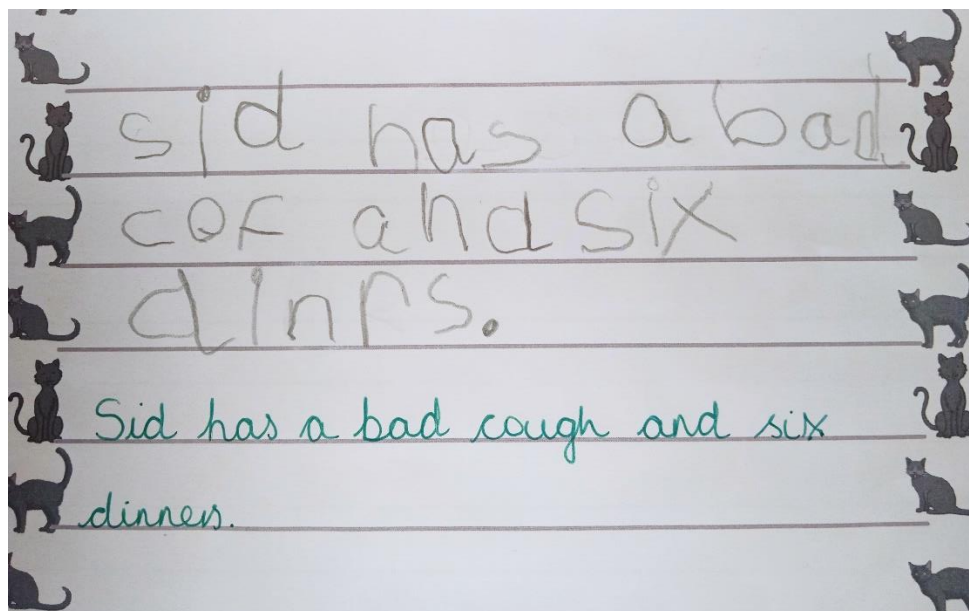 sid has a bad
cof and six
dinrs.
Sid has a bad cough and six
dinners.